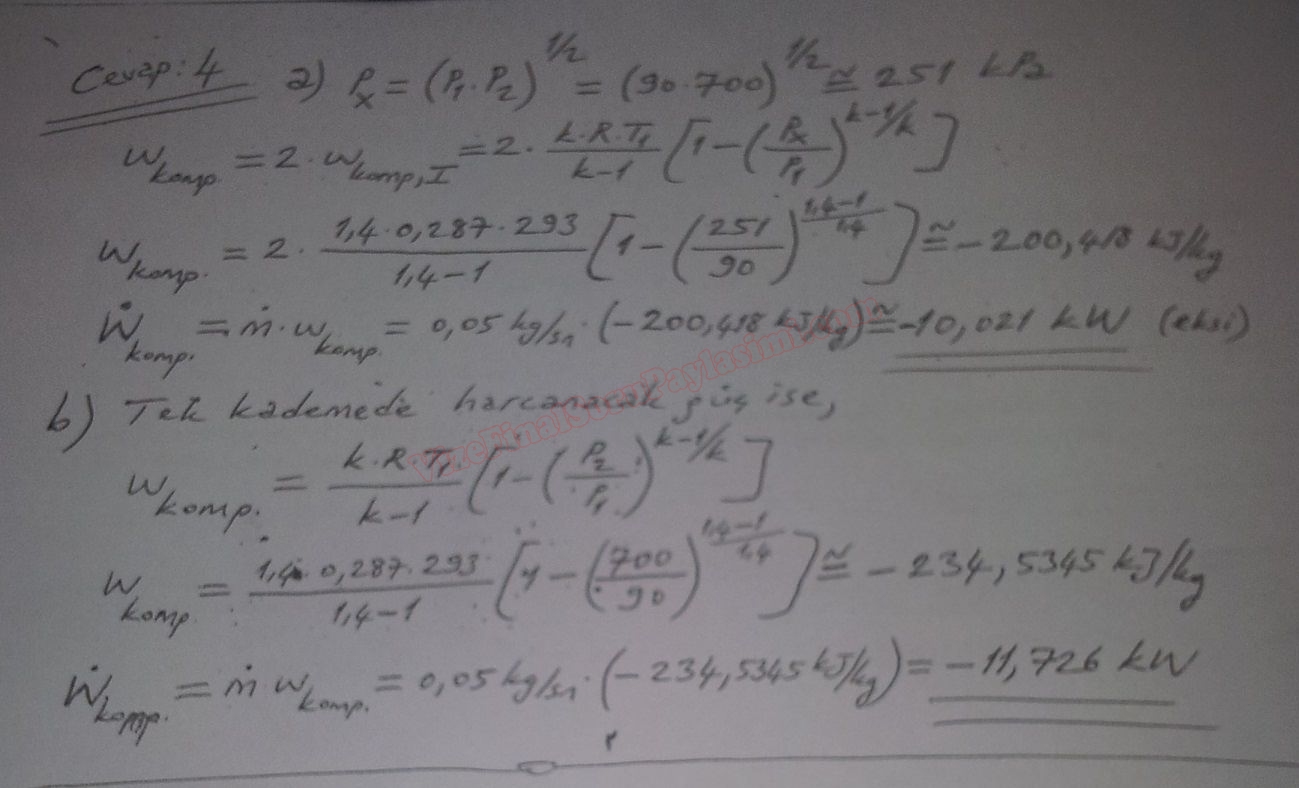 Cevap: 4 a) Px = (P1 . P2)^1/2 = (90 . 700)^1/2 ≅ 251 kPa
Wkomp. = 2 . Wkomp,I = 2 . k.R.T1 / k-1 [1 - (Px/P1)^k-1/k]
Wkomp. = 2 . 1,4 . 0,287 . 293 / 1,4-1 [1 - (251/90)^1,4-1/1,4] ≅ -200,418 kJ/kg
Ẇkomp. = ṁ . Wkomp. = 0,05 kg/sn . (-200,418 kJ/kg) ≅ -10,021 kW (eksi)
b) Tek kademede harcanacak güç ise,
Wkomp. = k.R.T1 / k-1 [1 - (P2/P1)^k-1/k]
Wkomp. = 1,4 . 0,287 . 293 / 1,4-1 [1 - (700/90)^1,4-1/1,4] ≅ -234,5345 kJ/kg
Ẇkomp. = ṁ Wkomp. = 0,05 kg/sn . (-234,5345 kJ/kg) = -11,726 kW